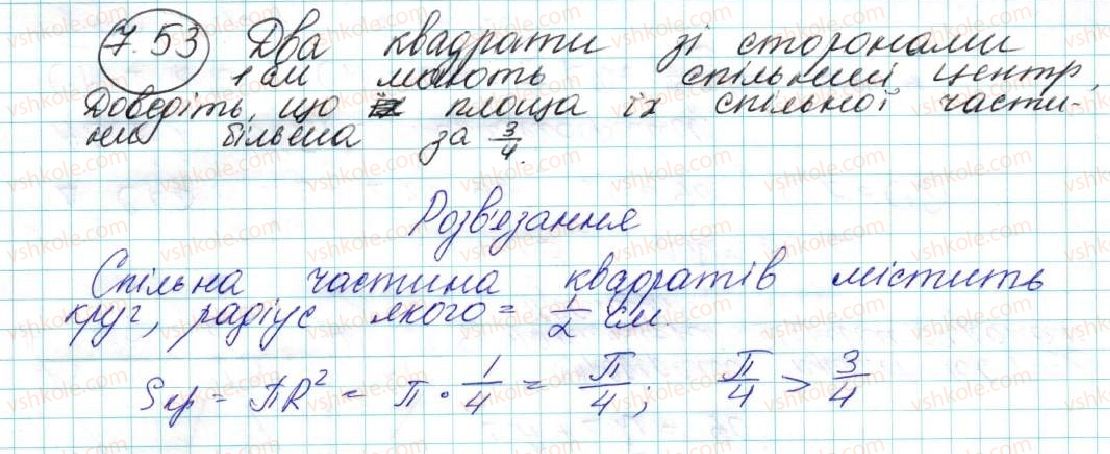 7.53 Два квадрати зі сторонами
1 см мають спільний центр.
Доведіть, що площа їх спільної части-
ни більша за 3/4.
Розв'язання
Спільна частина квадратів містить
круг, радіус якого = 1/2 см.
Sкр = πR² = π · 1/4 = π/4; π/4 > 3/4